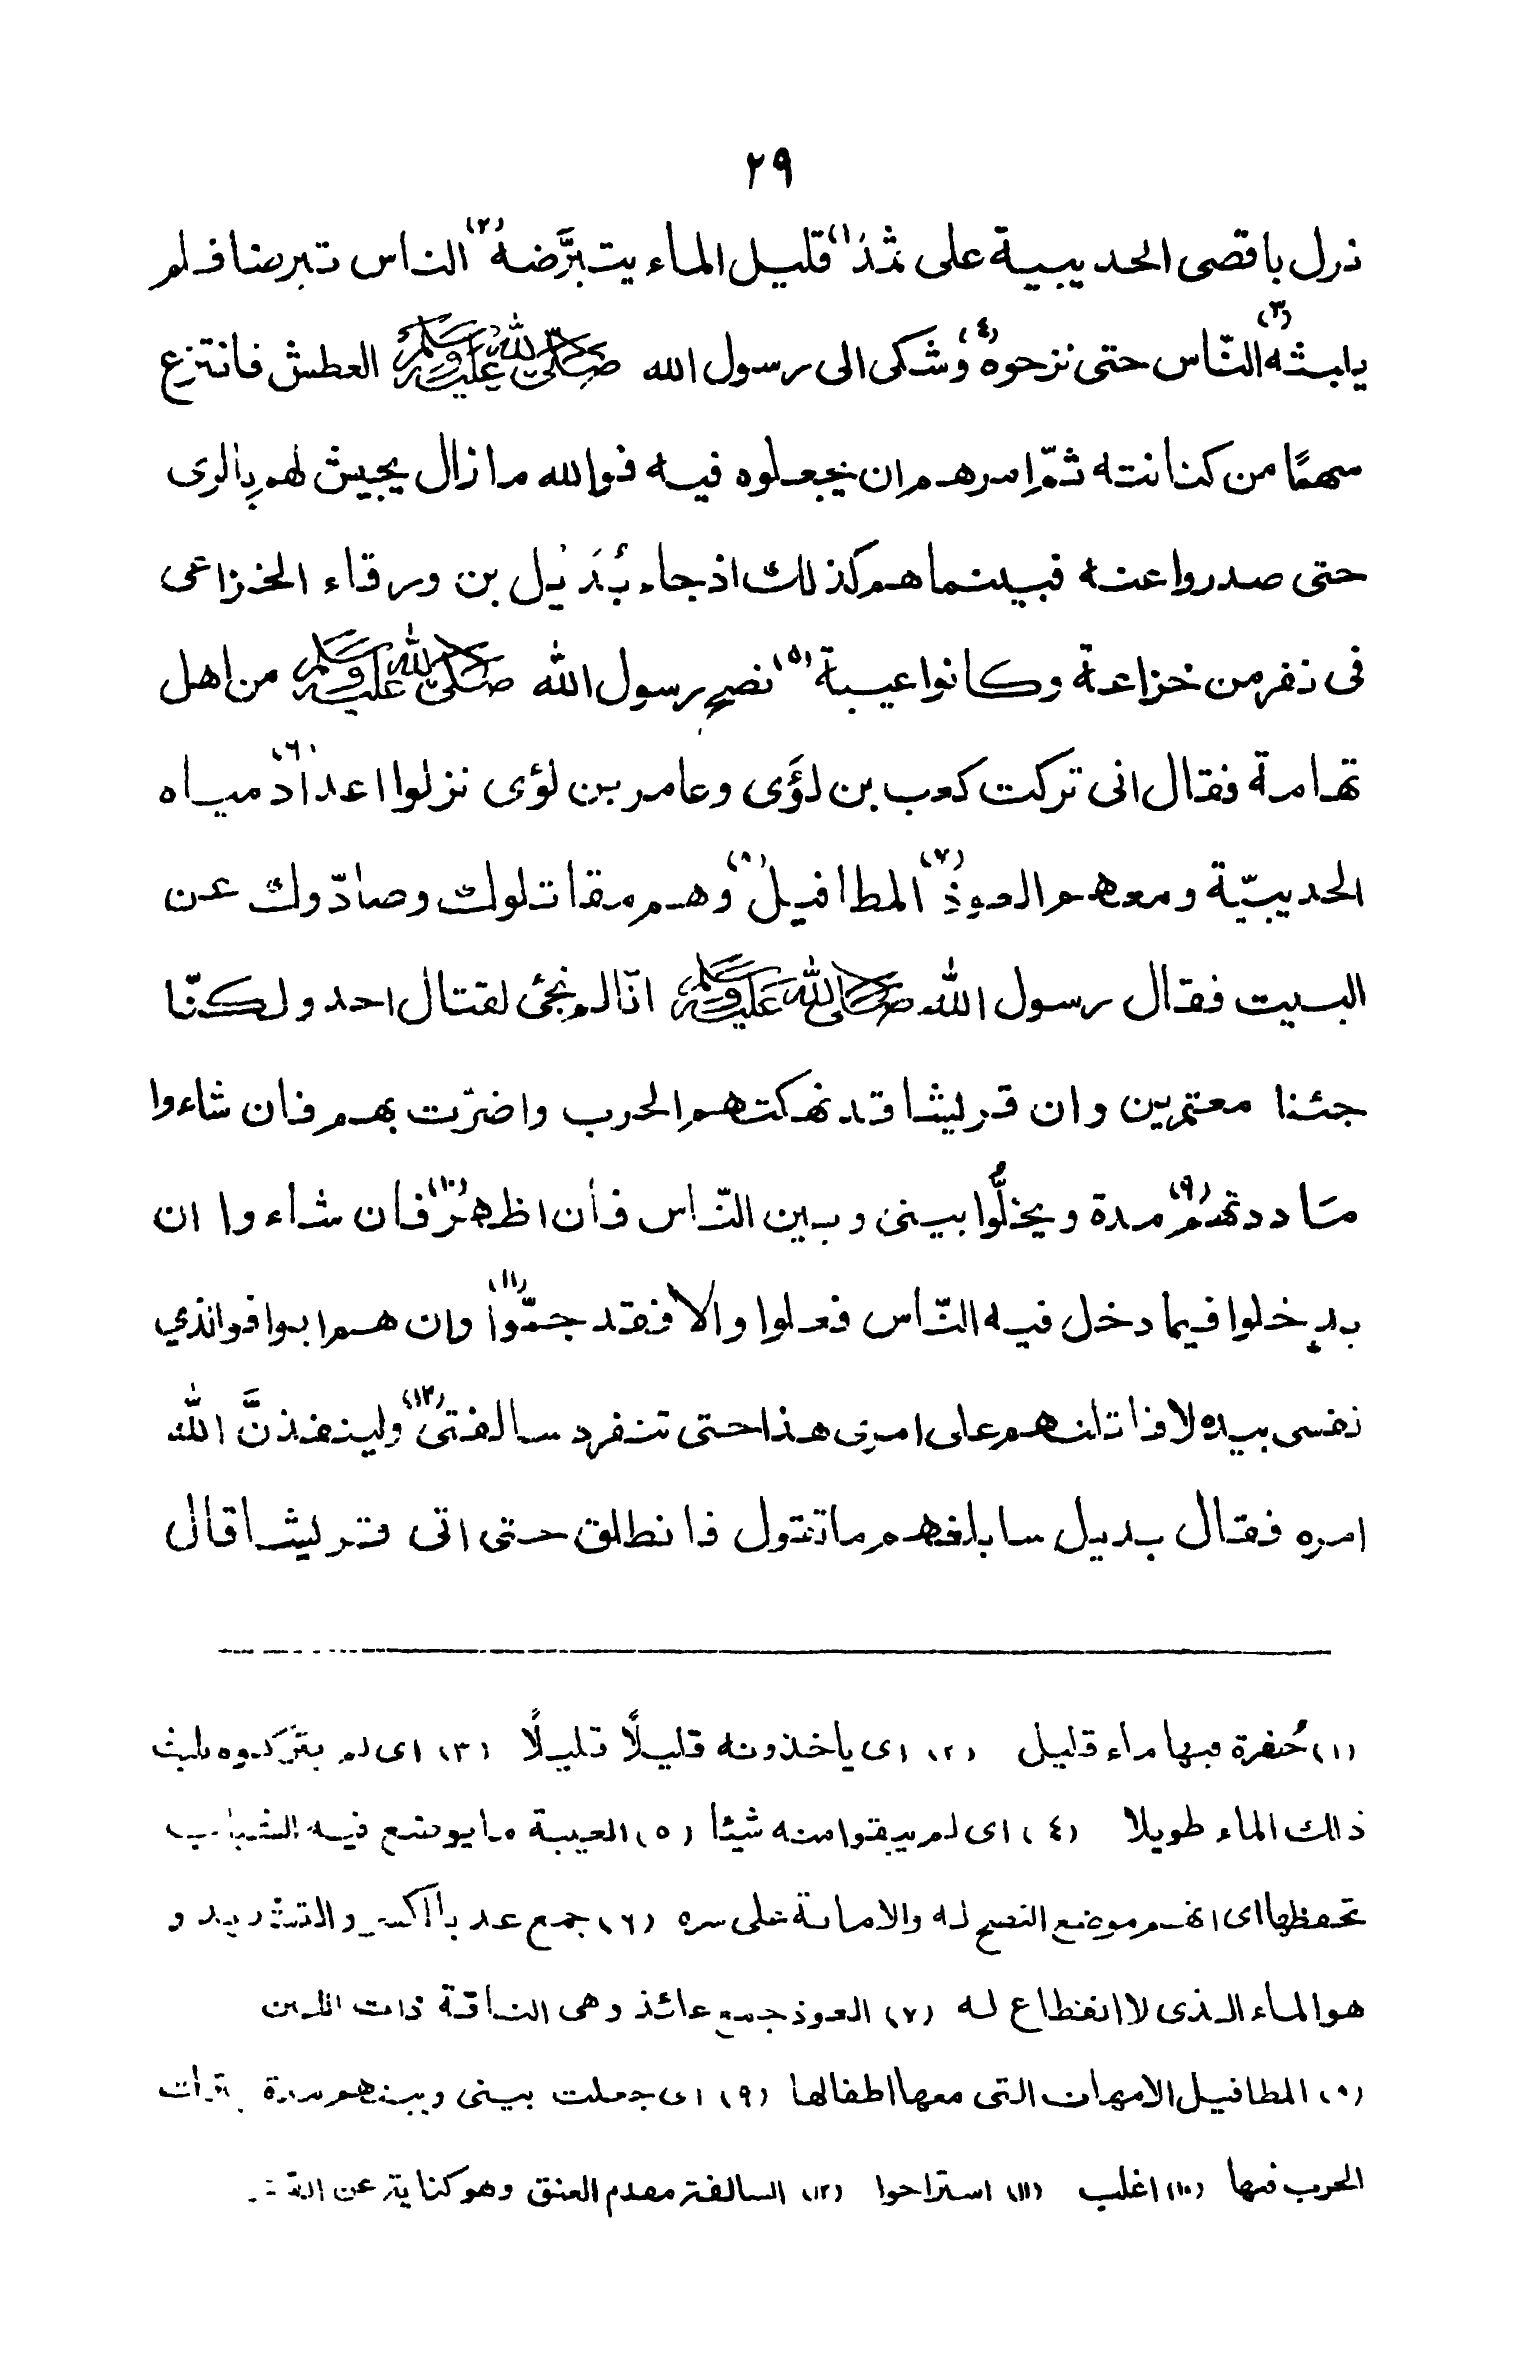 ٢٩
نزل باقصى الحديبية على ثمَد(١) قليل الماء يتبرَّضه(٢) الناس تبرضا فلم
يلبثه(٣) النّاس حتى نزحوه(٤) وشكى الى رسول الله ﷺ العطش فانتزع
سهمًا من كنانته ثمّ امرهم ان يجعلوه فيه فوالله ما زال يجيش لهم بالرى
حتى صدروا عنه فبينما هم كذلك اذ جاء بُدَيل بن ورقاء الخزاعى
فى نفر من خزاعة وكانوا عيبة(٥) نصحِ رسول الله ﷺ من اهل
تهامة فقال انى تركت كعب بن لؤَى وعامر بن لؤى نزلوا اعداد(٦) مياه
الحديبيّة ومعهم العوذ(٧) المطافيل(٨) وهم مقاتلوك وصادّوك عن
البيت فقال رسول الله ﷺ انّا لم نجئ لقتال احد ولكنّا
جئنا معتمرين وان قريشا قد نهكتهم الحرب واضرّت بهم فان شاءوا
ماددتهم(٩) مدة ويخلُّوا بينى وبين النّاس فأن اظهر(١٠) فان شاءوا ان
يدخلوا فيما دخل فيه النّاس فعلوا والا فقد جمّوا(١١) وان هم ابوا فوالذي
نفسى بيده لاقاتلنهم على امرى هذا حتى تنفرد سالفتى(١٢) ولينفذنَّ الله
امره فقال بديل سابلغهم ما تقول فانطلق حتى اتى قريشا قال
(١) حُفرة فيها ماء قليل (٢) اى ياخذونه قليلًا قليلًا (٣) اى لم يتركوه يلبث
ذالك الماء طويلا (٤) اى لم يبقوا منه شيئا (٥) العيبة ما يوضع فيه الثياب
تحفظها اى انهم موضع النصح له والامانة على سره (٦) جمع عد بالكسر والتشديد و
هو الماء الذى لا انقطاع له (٧) العوذ جمع عائذ وهى الناقة ذات اللبن
(٨) المطافيل الامهات التى معها اطفالها (٩) اى جعلت بينى وبينهم مدة
الحرب فيها (١٠) اغلب (١١) استراحوا (١٢) السالفة مقدم العنق وهو كناية عن